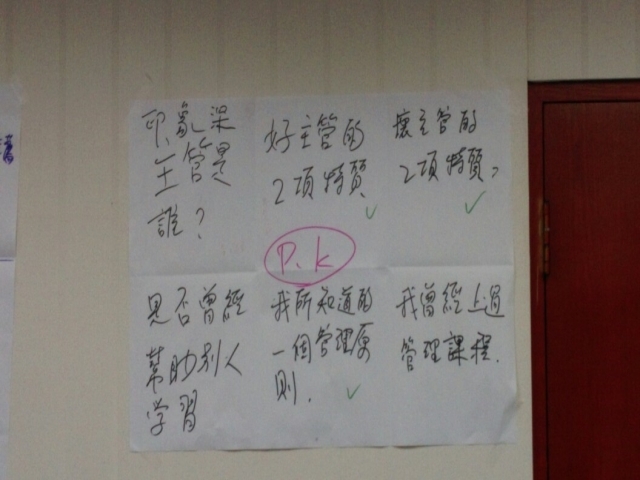 印象深
主管是
誰?
好主管的
2項特質
壞主管的
2項特質?
P.k
是否曾經
幫助別人
学習
我所知道的
一個管理原
則.
我曾經上過
管理課程.